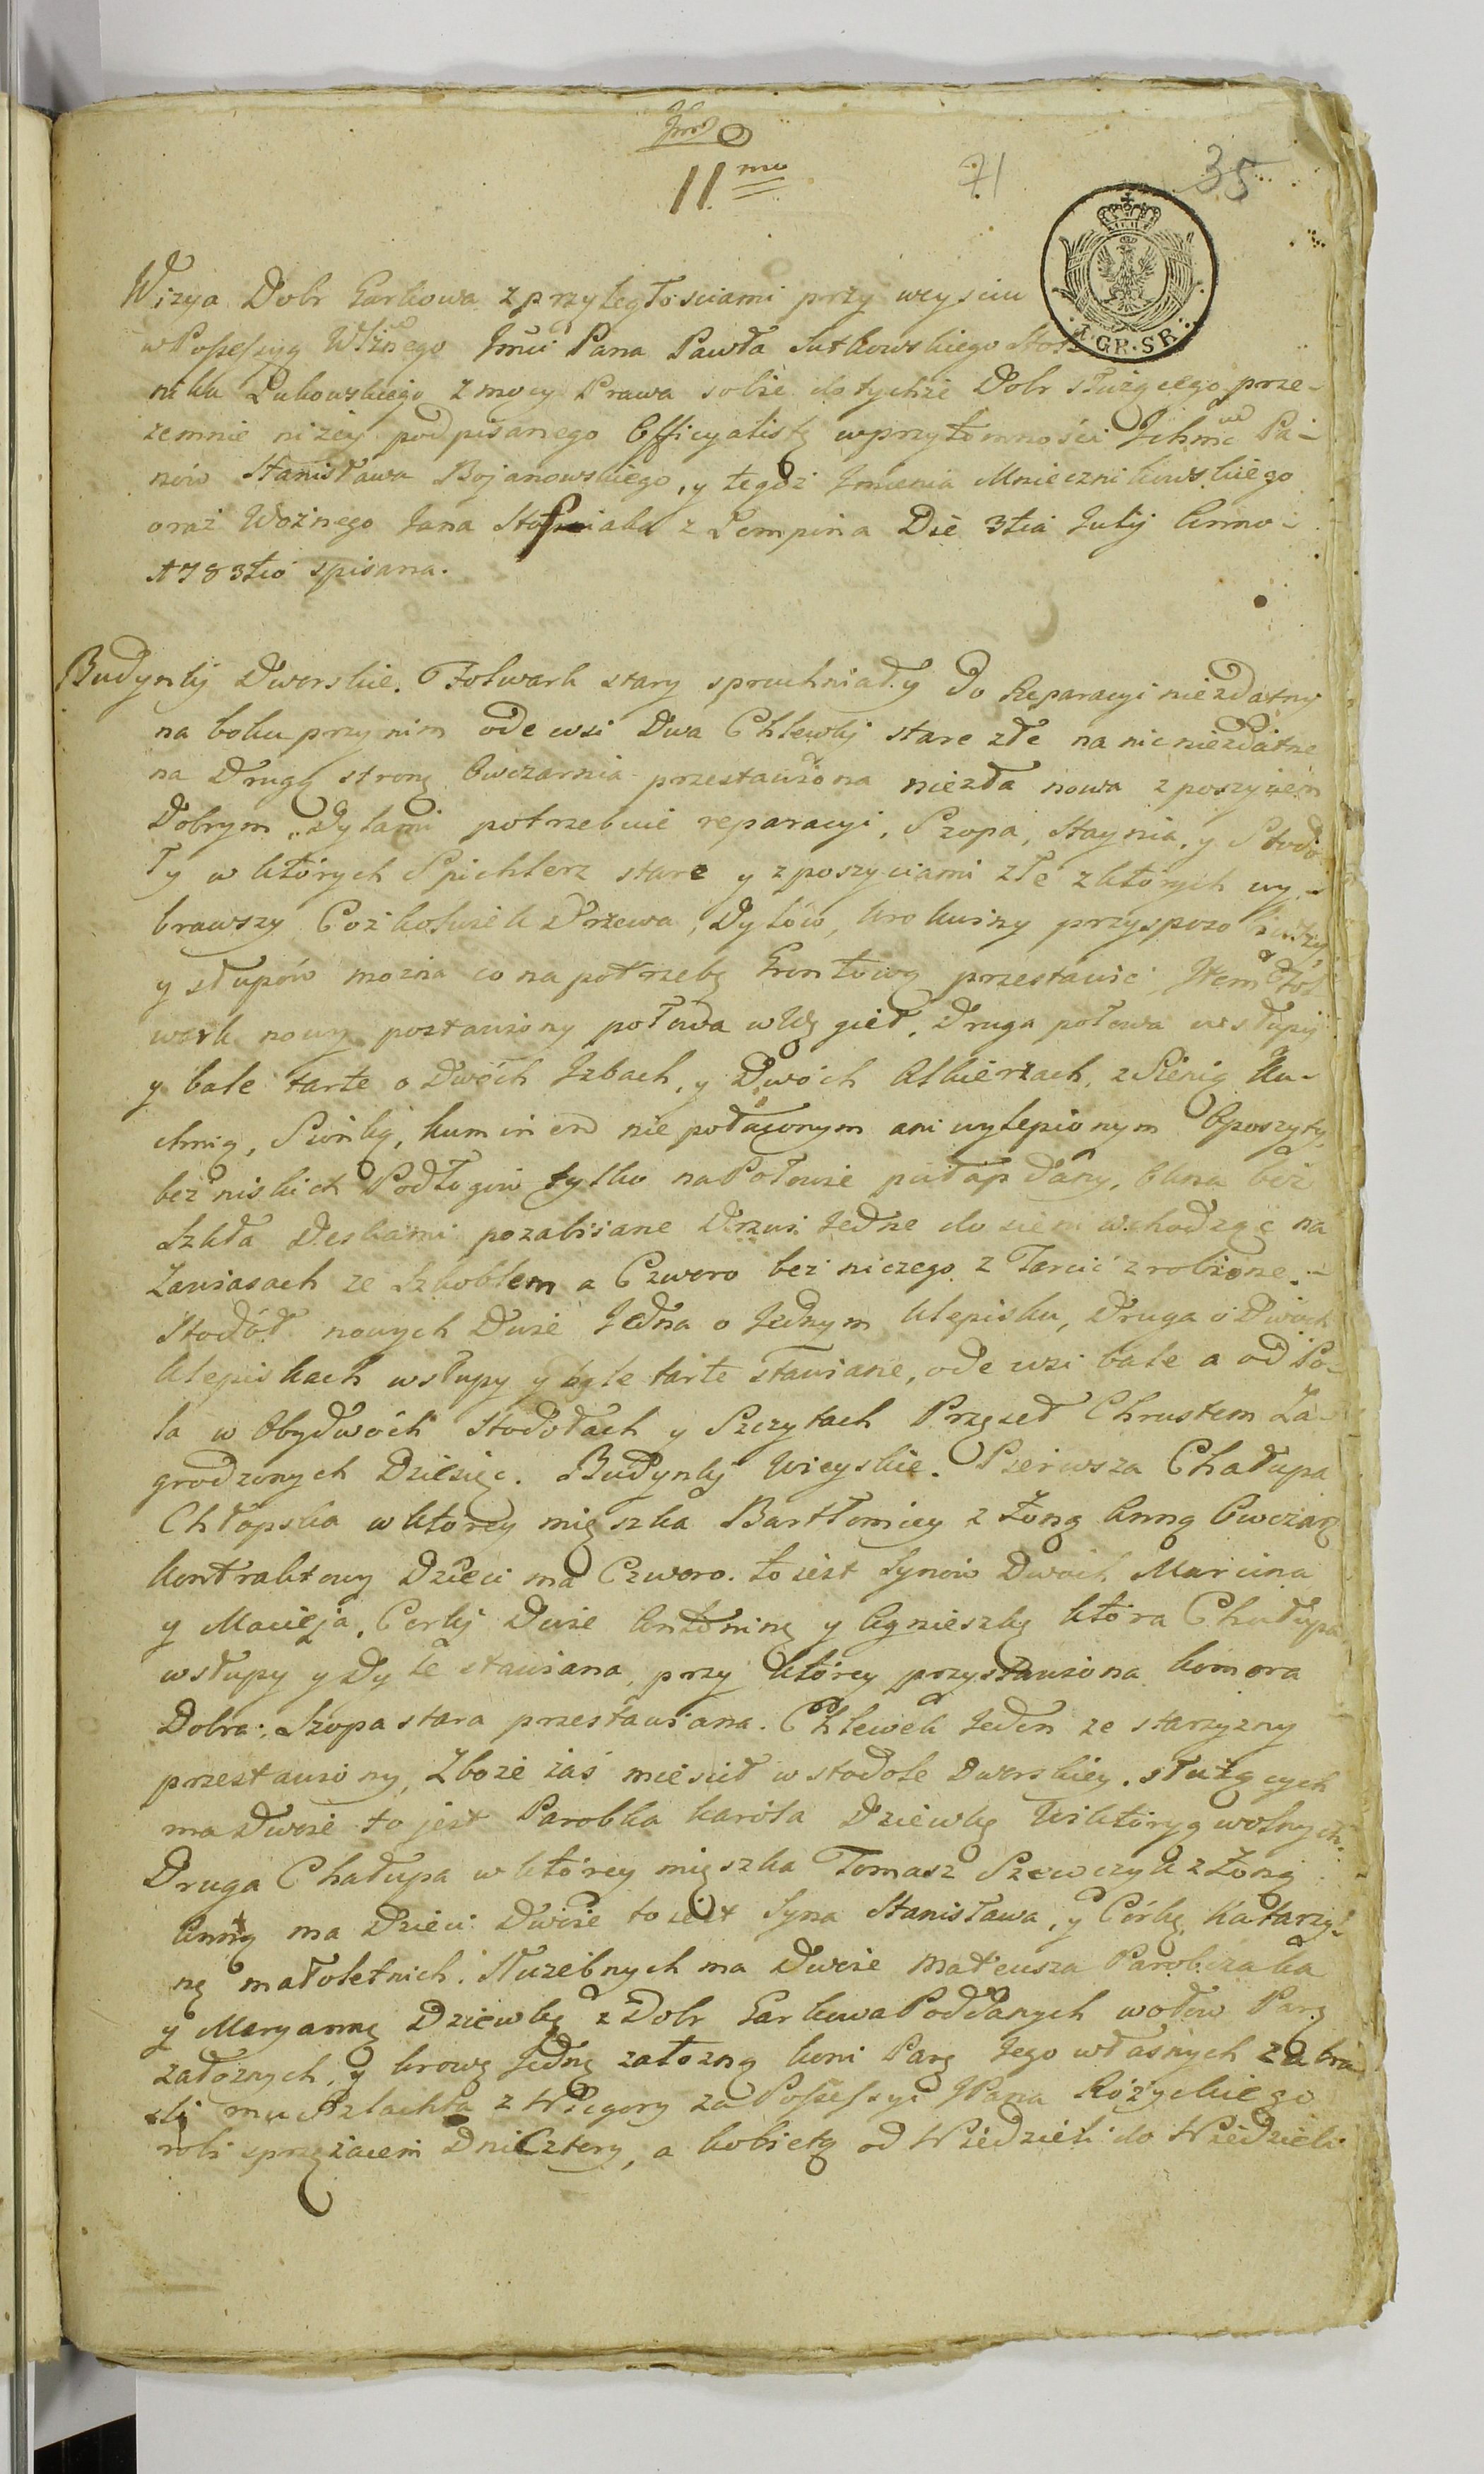 11mo
71
35
1.GR.SR.
Wizya Dobr Garkowa z przyległosciami przy weysciu
w Possessyą Wlżnego Jmći Pana Pawła Sutkowskiego Stol
nika Łukowskiego z mocy Prawa sobie do tychże Dobr służącego prze-
zemnie niżey podpisanego Officyalistę w przytomności Ichmć Pa-
nów Stanisława Bojanowskiego, y tegoż Jmienia Mniecznikowskiego
oraz Woźnego Jana z Lempina Die 3tia Julij Anno
1783tio spisana.
Budynkj Dworskie. Folwark stary spruchniały do Reparacyi niezdatny
na boku przy nim ode wsi Dwa Chlewkj stare złe na nic niezdatne
na Drugą stronę Owczarnia przestawiona niezła nowa z poszyciem
Dobrym, Dylami potrzebuie reparacyi, Szopa, Staynia, y Stodo
ły w których Spichlerz stare y z poszyciami złe z ktorych wy-
brawszy Cożkolwiek Drzewa, Dylów, krokwiny
y słupów można co na potrzebę Gruntową przestawić, Item Fol
wark nowy postawiony połowa w Węgieł, Druga połowa w słupy
y bale tarte o Dwóch Izbach, y Dwóch Alkierzach, z Sienią Ku-
chnią, kuminem nie połaconym ani wylepionym Oposzyty
bez niskich Podłogów tylko na Połowie pułap dany, Okna bez
Szkła Deskami pozabijane Drzwi Jedne do sieni wchodząc na
Zawiasach ze Szkoblem a Czworo bez niczego z Tarcić zrobione.-
Stodół nowych Dwie Jedna o Jednym klepisku, Druga o Dwoch
klepiskach w słupy y bale tarte stawiane, ode wsi bale a od Po-
la w Obydwóch Stodołach y Szczytach Przęseł Chrustem Za-
grodzonych Dziesięc. Budynkj Wieyskie. Pierwsza Chałupa
Chłopska w którey mięszka Bartłomiey z Żoną Anną Owczarz
kontraktowy Dzieci ma Czworo. to iest Synów Dwóch Marcina
y Macieja, Corkj Dwie Antoninę y Agnieszkę która Chałupa
w słupy y Dyle stawiana, przy którey przystawiona komora
Dobra: Szopa stara przestawiana. Chlewek Jeden ze starzyzny
przestawiony, Zboże zaś mieścił w stodole Dworskiey. służących
ma Dwoie to jest Parobka Karóla Dziewkę Wiktoryą wolnych.
Druga Chałupa w którey mięszka Tomasz Szewczyk z Żoną
Anną ma Dzieci Dwoie to iest Syna Stanisława, y Córkę Katarzy-
nę małoletnich. Służebnych ma Dwoie Mateusza Parobczaka
y Maryannę Dziewkę z Dobr Garkowa Poddanych wołów Parę
załoznych, y krowę Jednę załozną koni Parę Jego własnych zabra
li mu Szlachta z Wiegory za Possessyi JPana Różyckiego
robi sprzężaiem Dni Cztery, a kobietą od Niedzieli do Niedzieli